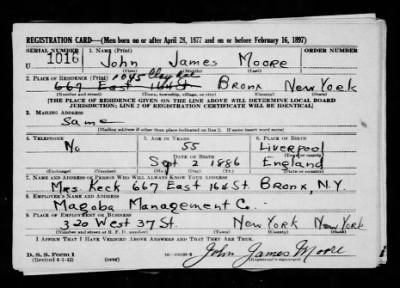 REGISTRATION CARD—(Men born on or after April 28, 1877 and on or before February 16, 1897)
SERIAL NUMBER 1. NAME (Print) ORDER NUMBER
U 1016 John James Moore
(First) (Middle) (Last)
1045 Clay Ave
2. PLACE OF RESIDENCE (Print)
667 East 164 St Bronx New York
(Number and street) (Town, township, village, or city) (County) (State)
[THE PLACE OF RESIDENCE GIVEN ON THE LINE ABOVE WILL DETERMINE LOCAL BOARD
JURISDICTION; LINE 2 OF REGISTRATION CERTIFICATE WILL BE IDENTICAL]
3. MAILING ADDRESS
Same
[Mailing address if other than place indicated on line 2. If same insert word same]
4. TELEPHONE 5. AGE IN YEARS 6. PLACE OF BIRTH
No 55 Liverpool
DATE OF BIRTH (Town or county)
Sept 2 1886 England
(Mo.) (Day) (Yr.) (State or country)
7. NAME AND ADDRESS OF PERSON WHO WILL ALWAYS KNOW YOUR ADDRESS
Mrs Keck 667 East 164 St. Bronx, N.Y.
8. EMPLOYER'S NAME AND ADDRESS
Magoba Management Co.
9. PLACE OF EMPLOYMENT OR BUSINESS
320 West 37 St. New York New York
(Number and street or R. F. D. number) (Town) (County) (State)
I AFFIRM THAT I HAVE VERIFIED ABOVE ANSWERS AND THAT THEY ARE TRUE.
D. S. S. Form 1
(Revised 4-1-42) John James Moore
(Registrant's signature)